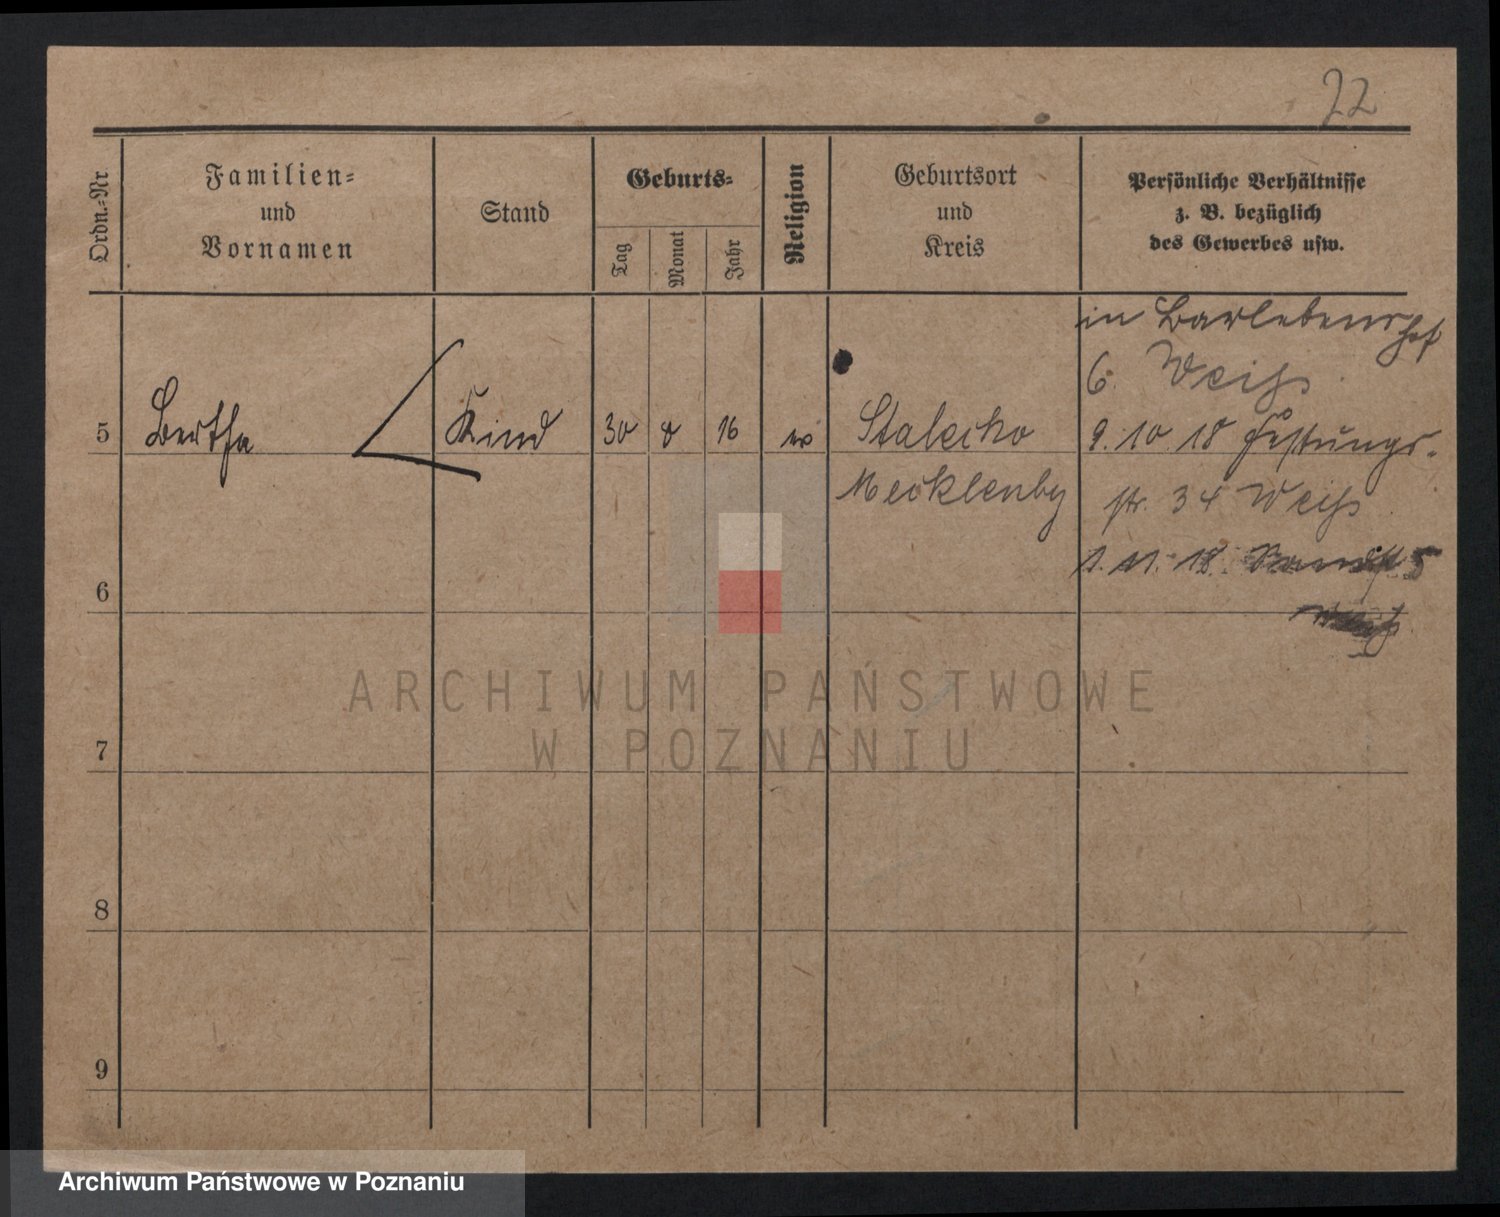 22
Ordn.-Nr
Familien-
und
Vornamen
Stand
Geburts-
Tag
Monat
Jahr
Religion
Geburtsort
und
Kreis
Persönliche Verhältnisse
z. B. bezüglich
des Gewerbes usw.
in Barlebenshof
6. Weiß
5 Bertha Kind 30 8 16 Stalecko 9. 10 18 Festungs-
Mecklenbg str. 34 Weiß
1. 11. 18 5
6
7
8
9
ARCHIWUM PAŃSTWOWE
W POZNANIU
Archiwum Państwowe w Poznaniu